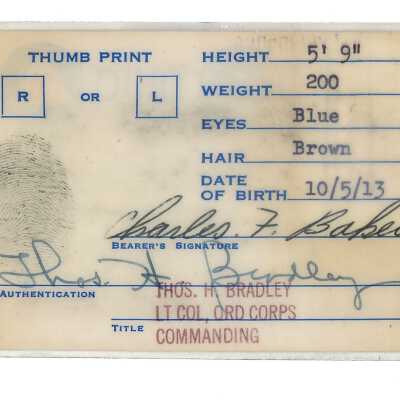 THUMB PRINT
R OR L
HEIGHT 5' 9"
WEIGHT 200
EYES Blue
HAIR Brown
DATE OF BIRTH 10/5/13
Charles. F. Baker
BEARER'S SIGNATURE
Thos. H. Bradley
AUTHENTICATION
THOS. H. BRADLEY
LT COL, ORD CORPS
TITLE COMMANDING